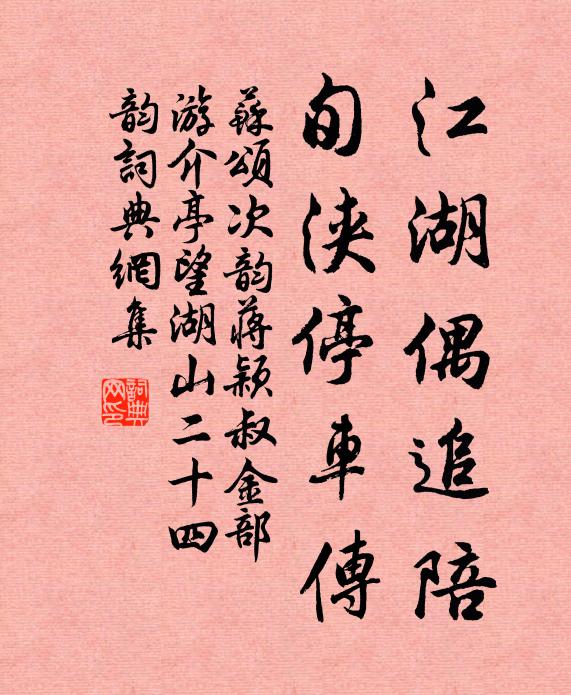 江湖偶追陪
旬浹停車傳
蘇頌次韵蔣穎叔金部
游介亭望湖山二十四
韵詞典網集
詞典网印